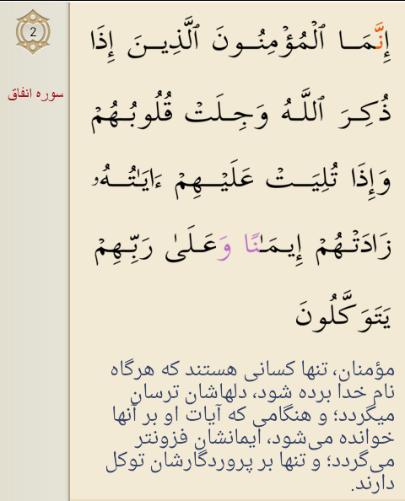 2
سوره انفاق
إِنَّمَا ٱلْمُؤْمِنُونَ ٱلَّذِينَ إِذَا
ذُكِرَ ٱللَّهُ وَجِلَتْ قُلُوبُهُمْ
وَإِذَا تُلِيَتْ عَلَيْهِمْ ءَايَٰتُهُۥ
زَادَتْهُمْ إِيمَٰنًا وَعَلَىٰ رَبِّهِمْ
يَتَوَكَّلُونَ
مؤمنان، تنها کسانی هستند که هرگاه
نام خدا برده شود، دلهاشان ترسان
میگردد؛ و هنگامی که آیات او بر آنها
خوانده می‌شود، ایمانشان فزونتر
می‌گردد؛ و تنها بر پروردگارشان توکل
دارند.